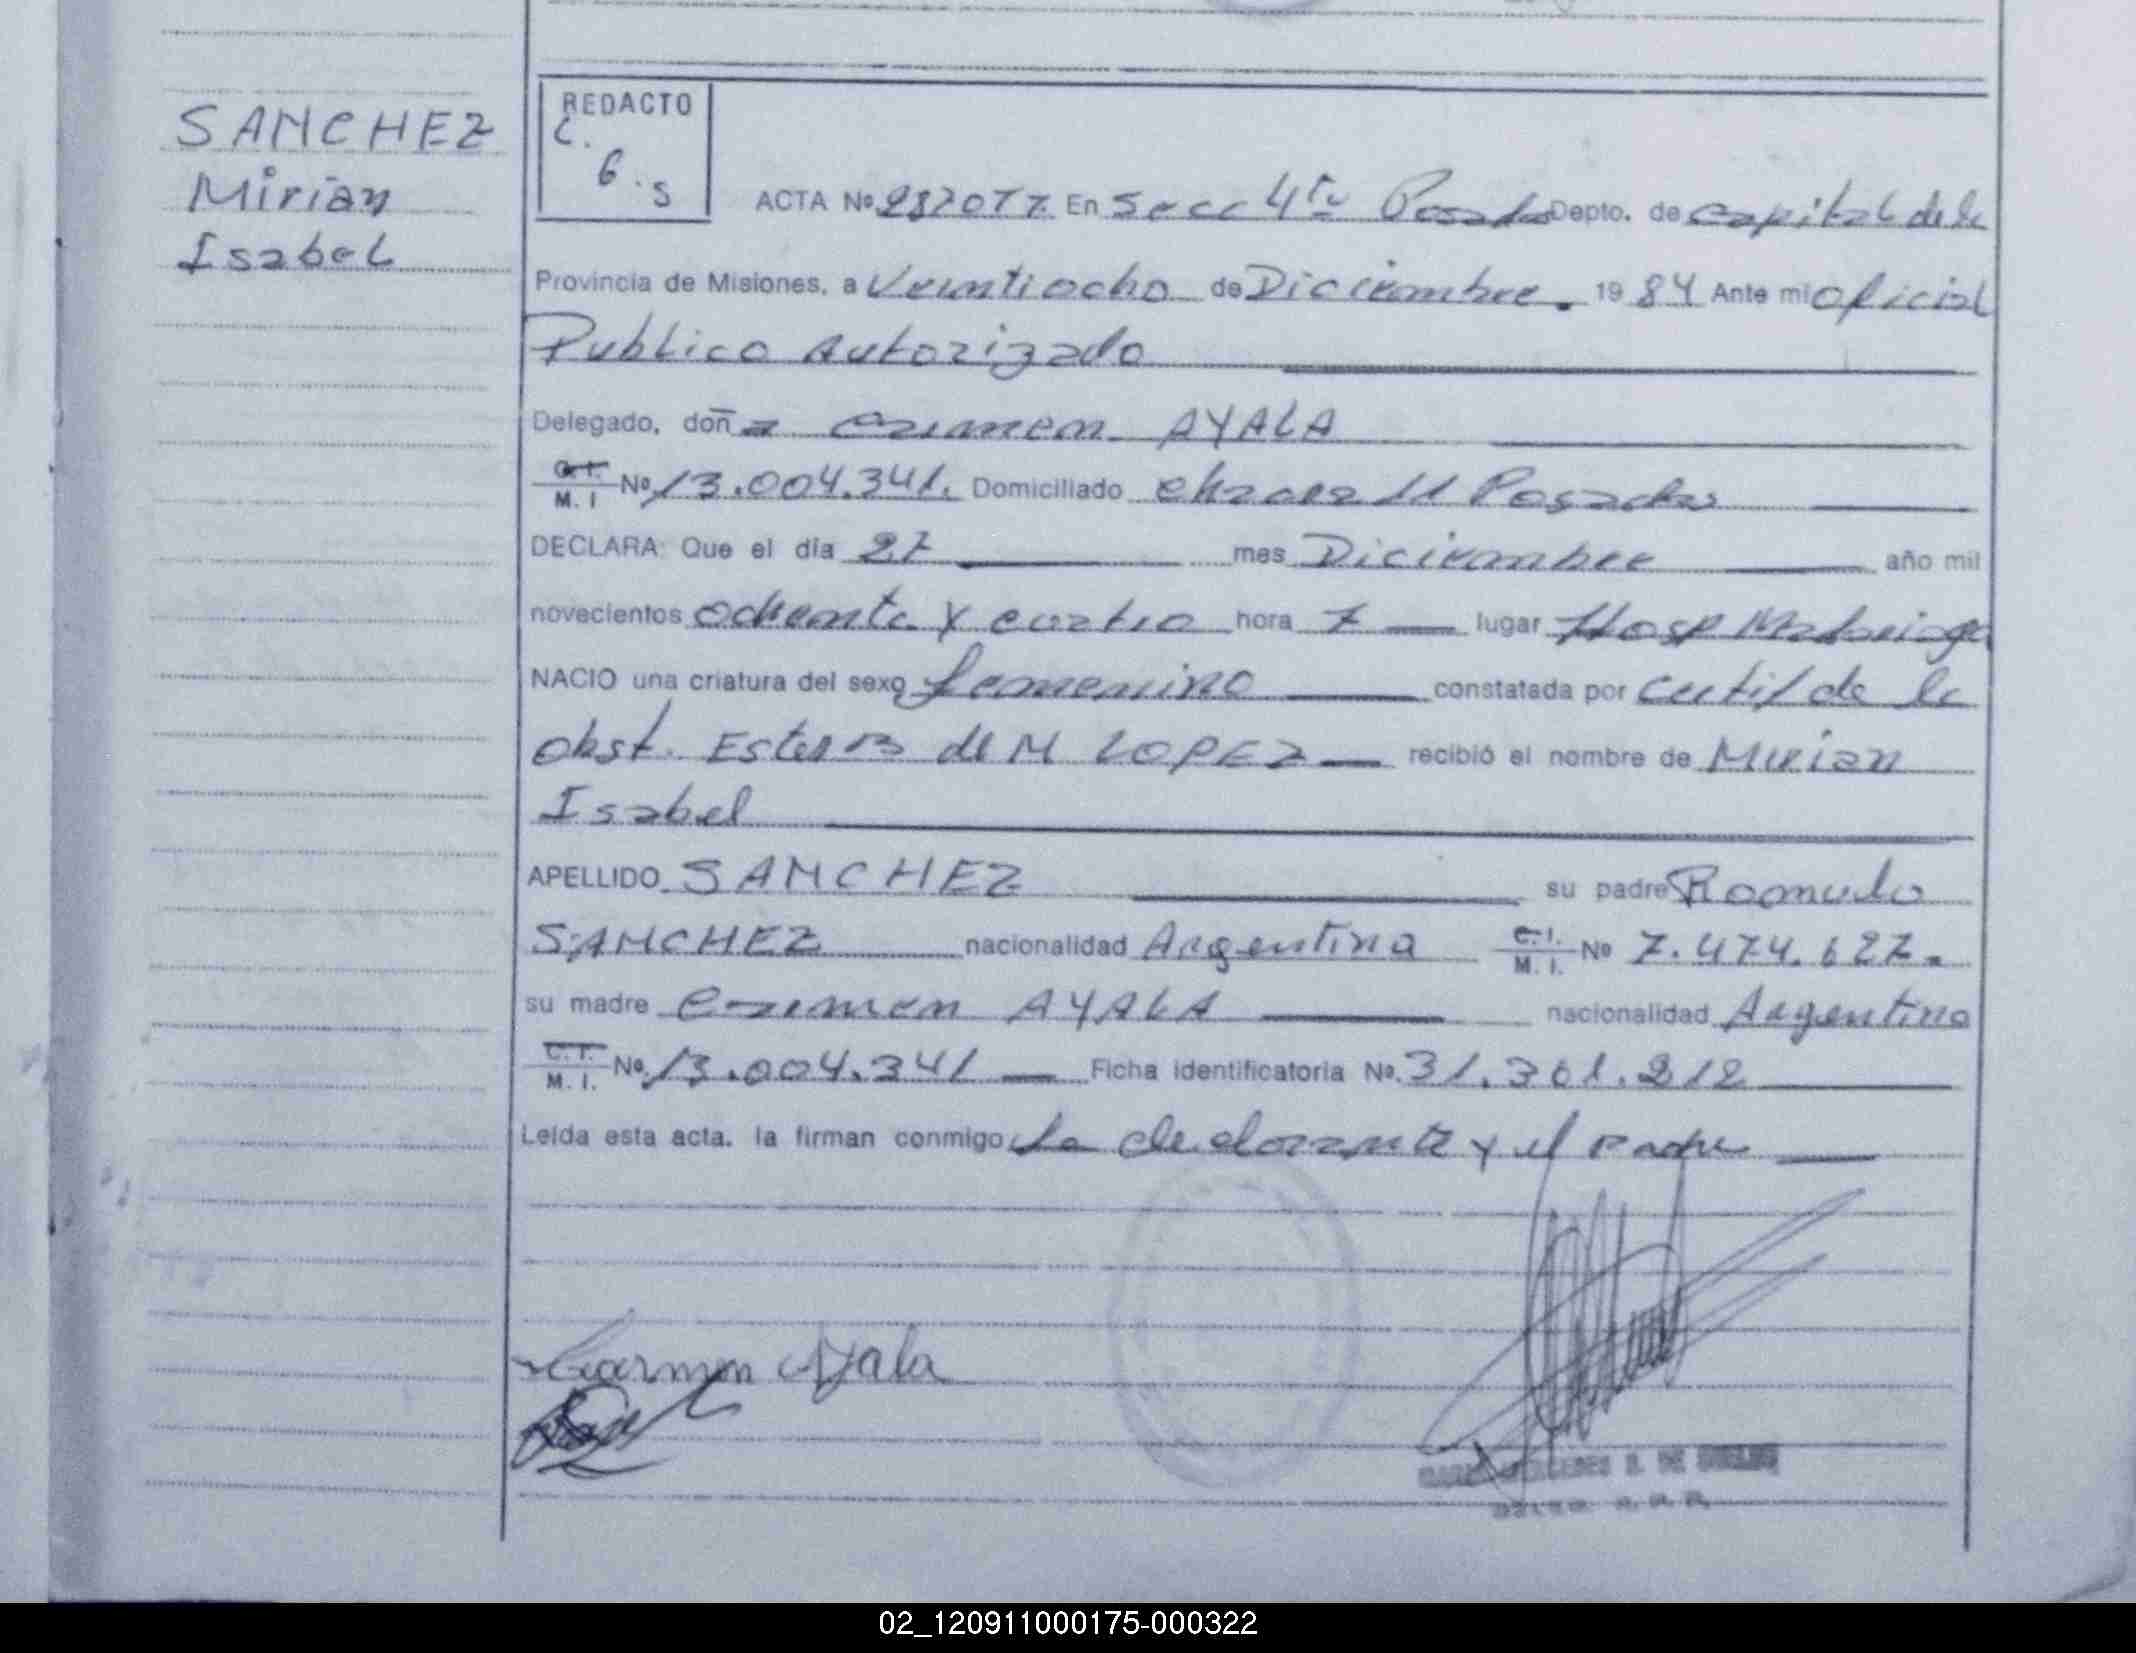 SANCHEZ
Mirian
Isabel
REDACTO
C.
G. S
ACTA Nº 2820 T7. En Secc 4ta Posadas Depto. de Capital de la
Provincia de Misiones, a Veintiocho de Diciembre. 1984 Ante mi oficial
Publico Autorizado
Delegado, doña Carmen AYALA
C. I. M. I Nº 13.004.341. Domiciliado chacra 11 Posadas
DECLARA: Que el día 27 mes Diciembre año mil
novecientos ochenta y cuatro hora 7 lugar Hosp Madariaga
NACIO una criatura del sexo femenino constatada por Certif de la
obst. Ester B de M LOPEZ recibió el nombre de Mirian
Isabel
APELLIDO SANCHEZ su padre Romulo
SANCHEZ nacionalidad Argentina C. I. M. I. Nº 7.474.627.
su madre Carmen AYALA nacionalidad Argentina
C. I. M. I. Nº 13.004.341 Ficha identificatoria Nº 31.301.212
Leída esta acta, la firman conmigo la declarante y el Padre
Carmen Ayala
02_120911000175-000322